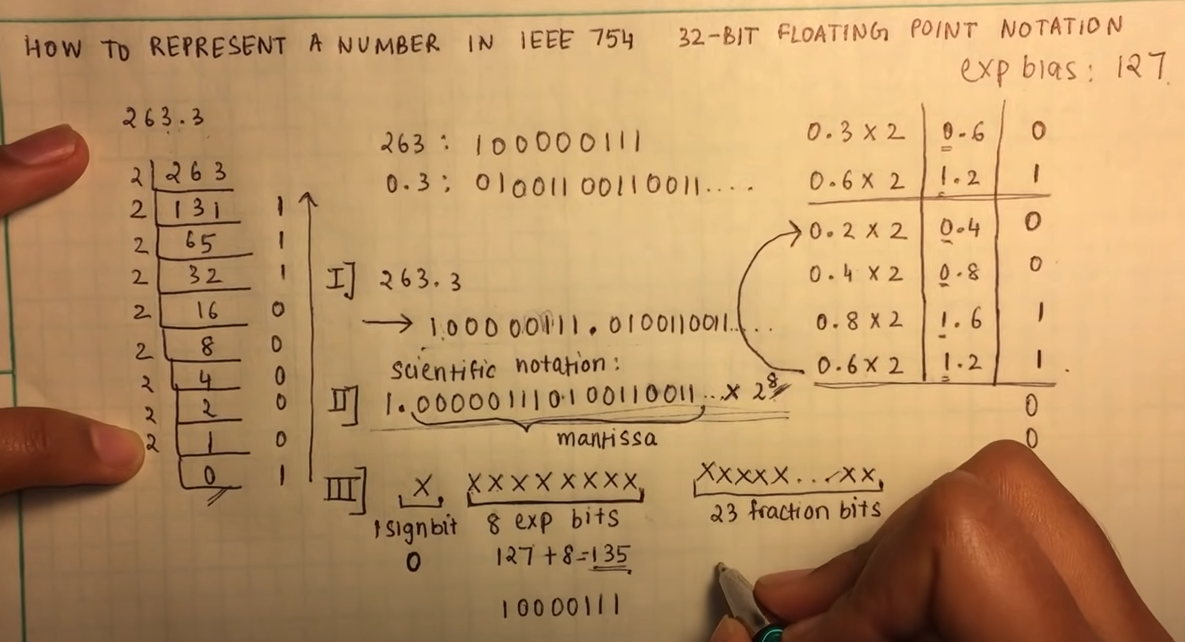 HOW TO REPRESENT A NUMBER IN IEEE 754 32-BIT FLOATING POINT NOTATION
exp bias: 127
263.3
2 263
2 131 1
2 65 1
2 32 1
2 16 0
2 8 0
2 4 0
2 2 0
2 1 0
0 1
263 : 100000111
0.3 : 0100110011 0011....
I] 263.3
→ 100000111.0100110011.....
scientific notation:
II] 1.00000111010011 0011...x 2^8
mantissa
III] X XXXXXXXX XXXXX...XX
1 sign bit 8 exp bits 23 fraction bits
0 127 + 8 = 135
10000111
0.3 x 2 0.6 0
0.6 x 2 1.2 1
0.2 x 2 0.4 0
0.4 x 2 0.8 0
0.8 x 2 1.6 1
0.6 x 2 1.2 1
0
0